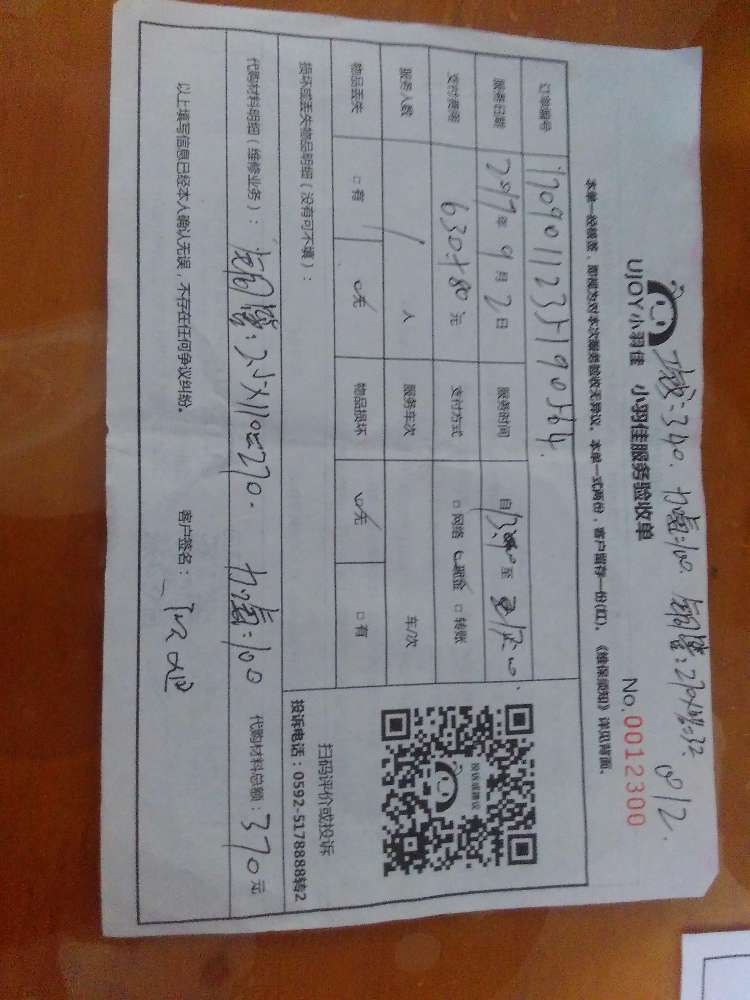 UJOY小羽佳 小羽佳服务验收单
No.0012300
本单一经核签，即视为对本次服务验收无异议。本单一式两份，客户留存一份(红)。《维保须知》详见背面。
订单编号
服务日期 2017年9月2日 服务时间 自 至
支付费用 630+80元 支付方式 □网络 现金 □转账
服务人数 1人 服务车次 车/次
物品丢失 □有 无 物品损坏 无 □有
损坏或丢失物品明细（没有可不填）：
扫码评价或投诉
投诉电话：0592-5178888转2
投诉或建议
代购材料明细（维修业务）：铜管: =270. 加氟:100 代购材料总额：370元
以上填写信息已经本人确认无误，不存在任何争议纠纷。 客户签名：